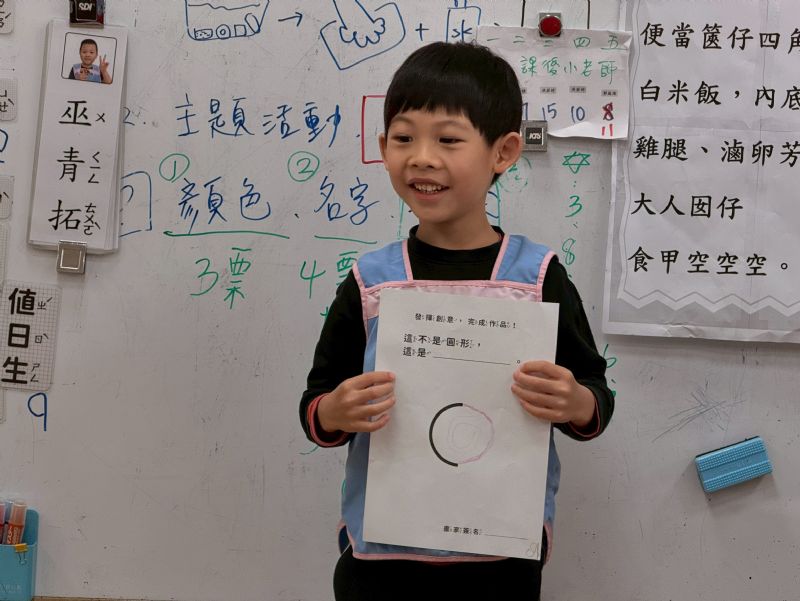 巫ㄨ
青ㄑㄧㄥ
拓ㄊㄨㄛˋ
值ㄓˊ
日ㄖˋ
生ㄕㄥ
9
+ 冰
2. 主題活動
① 顏色、② 名字
3票 4票
一 二 三 四 五
課後小老師
15 10 8
11
3
8
便當篋仔四角
白米飯，內底
雞腿、滷卵芳
大人囡仔
食甲空空空。
發揮創意，完成作品！
這不是圓形，
這是＿＿＿＿＿＿。
畫家簽名＿＿＿＿